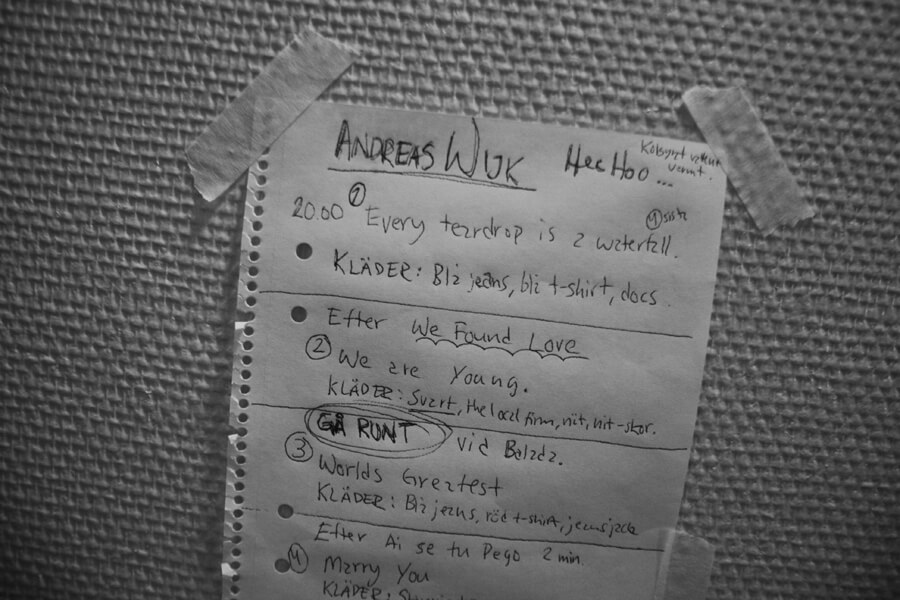 ANDREAS WIJK Hee Hoo ...
20.00 ① Every teardrop is a waterfall.
KLÄDER: Blå jeans, blå t-shirt, docs
Efter We Found Love
② We are Young.
KLÄDER: Svart, the local firm, nit, nit-skor.
GÅ RUNT vid Balada.
③ Worlds Greatest
KLÄDER: Blå jeans, röd t-shirt, jeansjacka
Efter Ai se tu Pego 2 min.
④ Marry You
KLÄDER: